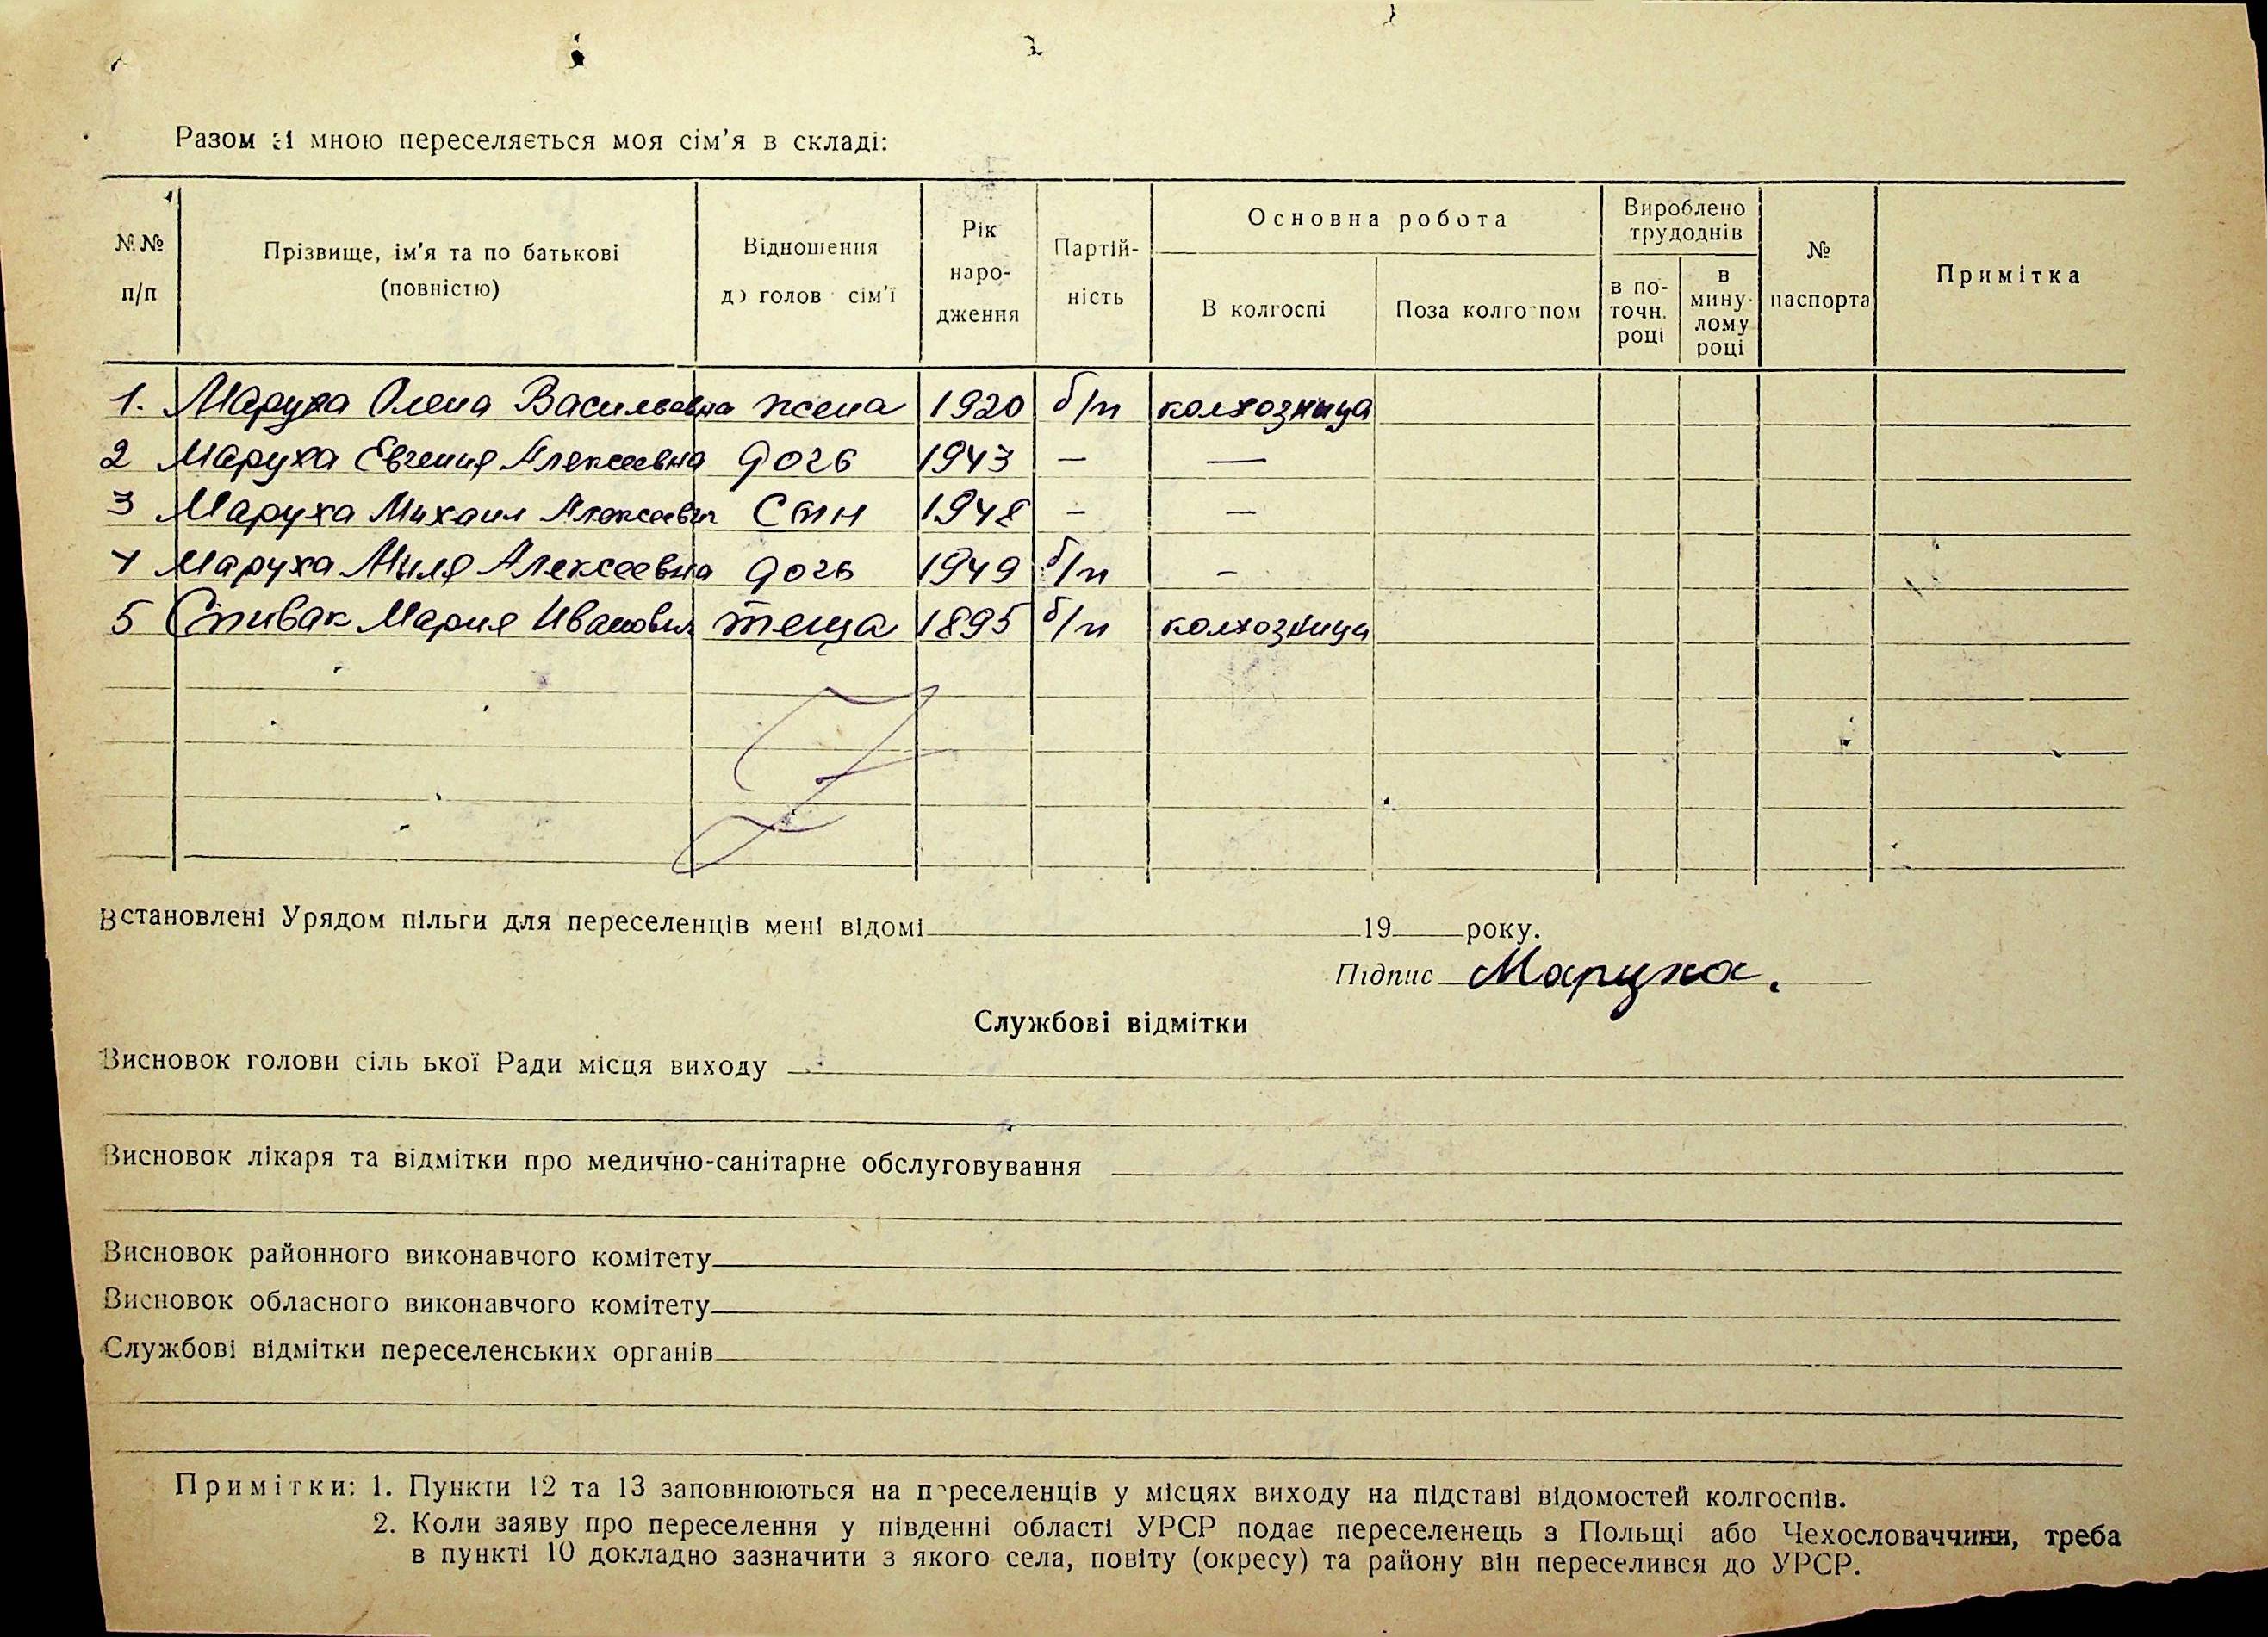 Разом зі мною переселяється моя сім'я в складі:
№№ п/п
Прізвище, ім'я та по батькові (повністю)
Відношення до голов сім'ї
Рік народження
Партійність
Основна робота
В колгоспі
Поза колгоспом
Вироблено трудоднів
в поточн. році
в минулому році
№ паспорта
Примітка
1. Маруха Олена Васильевна жена 1920 б/п колхозница
2 Маруха Евгения Алексеевна дочь 1943 — —
3 Маруха Михаил Алексеевич Сын 1948 — —
4 Маруха Миля Алексеевна дочь 1949 б/п —
5 Спивак Мария Ивановн теща 1895 б/п колхозница
Встановлені Урядом пільги для переселенців мені відомі 19 року.
Підпис Маруха.
Службові відмітки
Висновок голови сільської Ради місця виходу
Висновок лікаря та відмітки про медично-санітарне обслуговування
Висновок районного виконавчого комітету
Висновок обласного виконавчого комітету
Службові відмітки переселенських органів
Примітки: 1. Пункти 12 та 13 заповнюються на переселенців у місцях виходу на підставі відомостей колгоспів.
2. Коли заяву про переселення у південні області УРСР подає переселенець з Польщі або Чехословаччини, треба
в пункті 10 докладно зазначити з якого села, повіту (окресу) та району він переселився до УРСР.